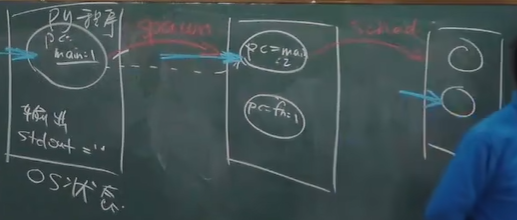 pc=
main=1
spawn
pc=main
=2
sched
pc=fn=1
输出
stdout=""
OS状态